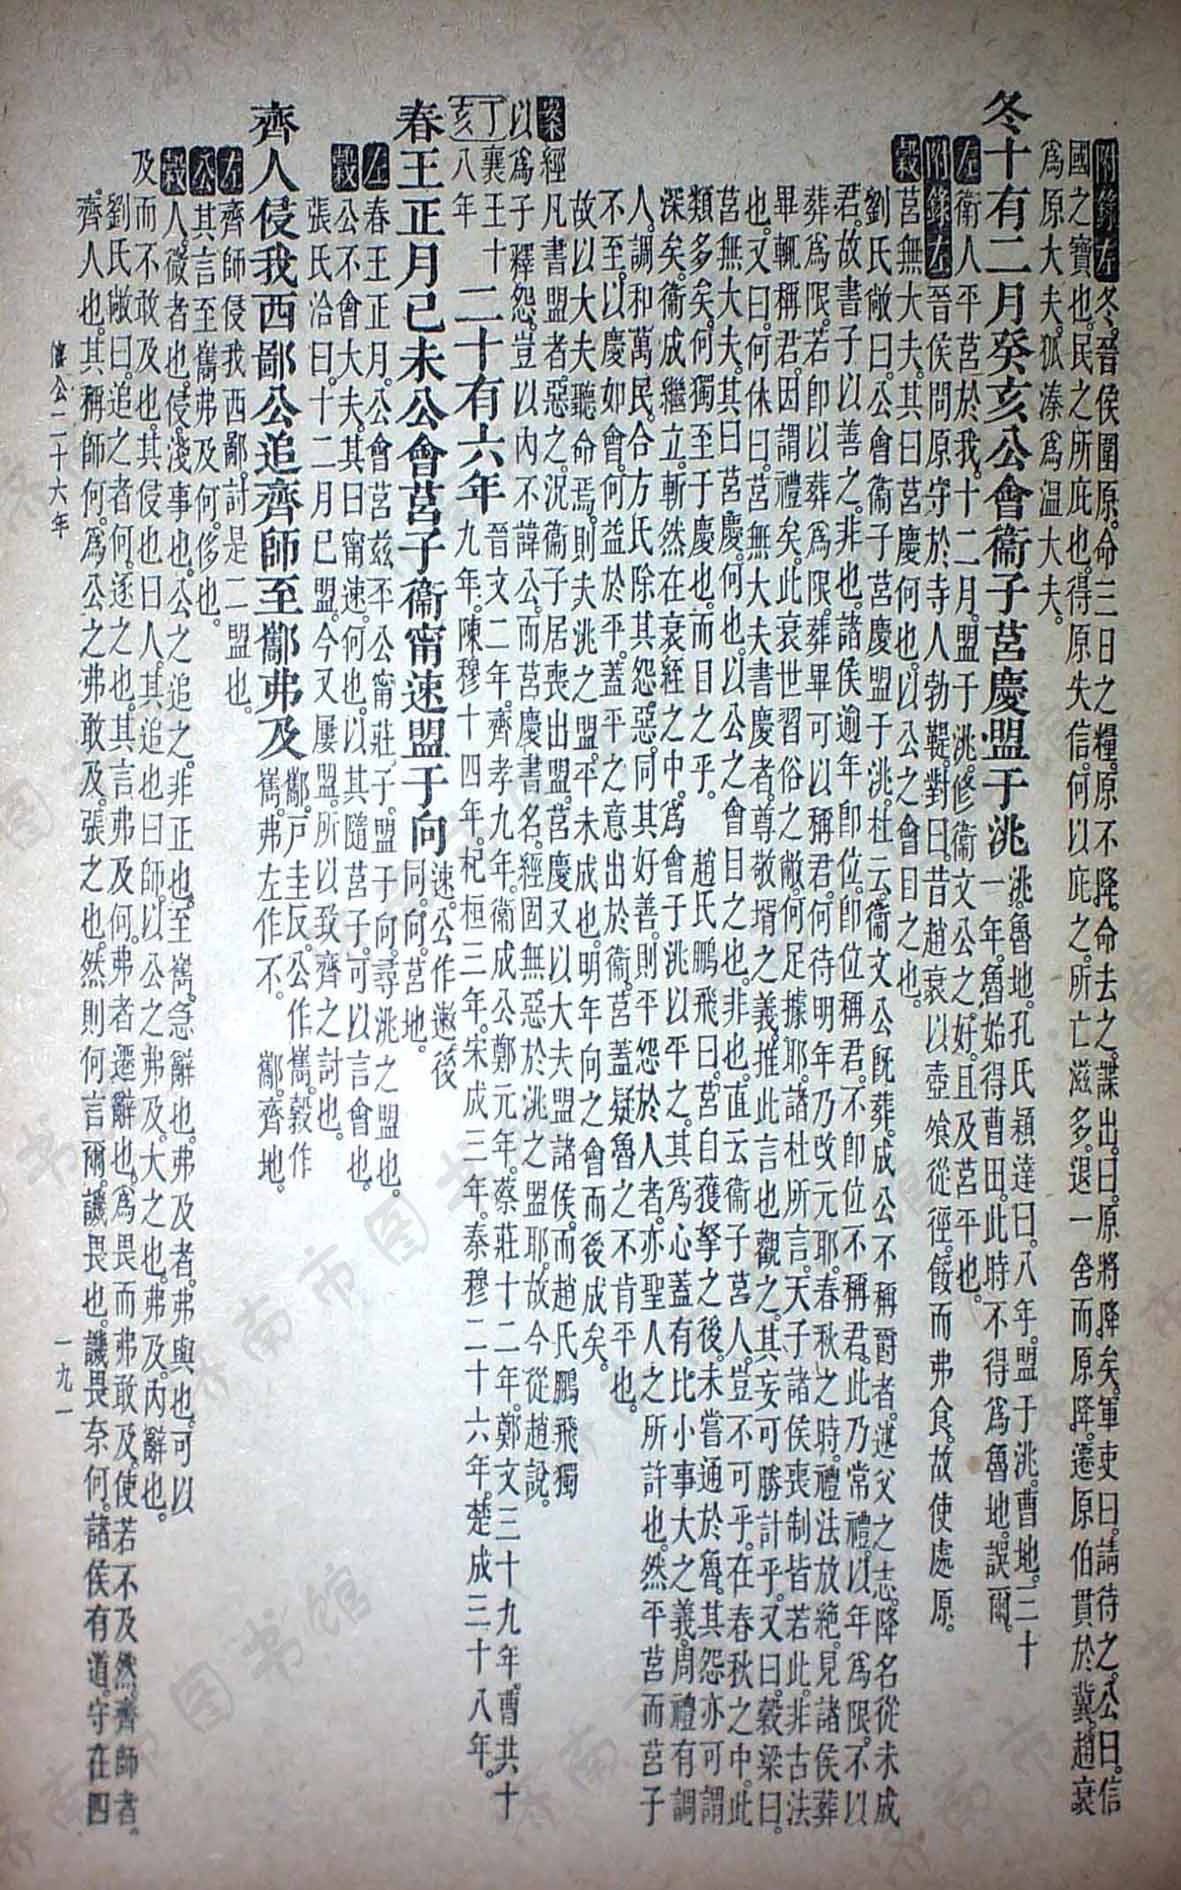 附錄左冬。晉侯圍原。命三日之糧。原不降。命去之。諜出。曰。原將降矣。軍吏曰。請待之。公曰。信
國之寶也。民之所庇也。得原失信。何以庇之。所亡滋多。退一舍而原降。遷原伯貫於冀。趙衰
爲原大夫。狐溱爲溫大夫。
冬十有二月癸亥公會衞子莒慶盟于洮
洮。魯地。孔氏穎達曰。八年。盟于洮。曹地。三十
一年。魯始得曹田。此時不得爲魯地。誤爾。
左衞人平莒於我。十二月。盟于洮。修衞文公之好。且及莒平也。
附錄左晉侯問原守於寺人勃鞮。對曰。昔趙衰以壺飧從徑。餒而弗食。故使處原。
穀莒無大夫。其曰莒慶何也。以公之會目之也。
劉氏敞曰。公會衞子莒慶盟于洮。杜云。衞文公既葬。成公不稱爵者。述父之志。降名從未成
君。故書子以善之。非也。諸侯逾年卽位。卽位稱君。不卽位不稱君。此乃常禮。以年爲限。不以
葬爲限。若卽以葬爲限。葬畢可以稱君。何待明年乃改元耶。春秋之時。禮法放絕。見諸侯葬
畢輒稱君。因謂禮矣。此衰世習俗之敝。何足據耶。諸杜所言。天子諸侯喪制皆若此。非古法
也。又曰。何休曰。莒無大夫。書慶者。尊敬壻之義。推此言也觀之。其妄可勝計乎。又曰。穀梁曰。
莒無大夫。其曰莒慶。何也。以公之會目之也。非也。直云衞子莒人。豈不可乎。在春秋之中。此
類多矣。何獨至于慶也。而目之乎。 趙氏鵬飛曰。莒自獲挐之後。未嘗通於魯。其怨亦可謂
深矣。衞成繼立。斬然在衰絰之中。爲會于洮以平之。其爲心蓋有比小事大之義。周禮有調
人。調和萬民。合方氏除其怨惡。同其好善。則平怨於人者。亦聖人之所許也。然平莒而莒子
不至。以慶如會。何益於平。蓋平之意出於衞。莒蓋疑魯之不肯平也。
故以大夫聽命焉。則夫洮之盟。平未成也。明年向之會而後成矣。
案經凡書盟者惡之。況衞子居喪出盟。莒慶又以大夫盟諸侯。而趙氏鵬飛獨
以爲子釋怨。豈以內不諱公。而莒慶書名。經固無惡於洮之盟耶。故今從趙說。
丁亥
襄王十
八年
二十有六年
晉文二年。齊孝九年。衞成公鄭元年。蔡莊十二年。鄭文三十九年。曹共十
九年。陳穆十四年。杞桓三年。宋成三年。秦穆二十六年。楚成三十八年。
春王正月己未公會莒子衞甯速盟于向
速。公作遬。後
同。向。莒地。
左春王正月。公會莒茲丕公甯莊子。盟于向。尋洮之盟也。
穀公不會大夫。其曰甯速。何也。以其隨莒子。可以言會也。
張氏洽曰。十二月已盟。今又屢盟。所以致齊之討也。
齊人侵我西鄙公追齊師至酅弗及
酅。戶圭反。公作巂。穀作
巂。弗左作不。 酅。齊地。
左齊師侵我西鄙。討是二盟也。
公其言至巂弗及何。侈也。
穀人。微者也。侵。淺事也。公之追之。非正也。至巂。急辭也。弗及者。弗與也。可以
及而不敢及也。其侵也曰人。其追也曰師。以公之弗及。大之也。弗及。內辭也。
劉氏敞曰。追之者何。逐之也。其言弗及何。弗者。遷辭也。爲畏而弗敢及。使若不及然。齊師者。
齊人也。其稱師何。爲公之弗敢及。張之也。然則何言爾。譏畏也。譏畏奈何。諸侯有道。守在四
僖公二十六年
一九一
济南市图书馆